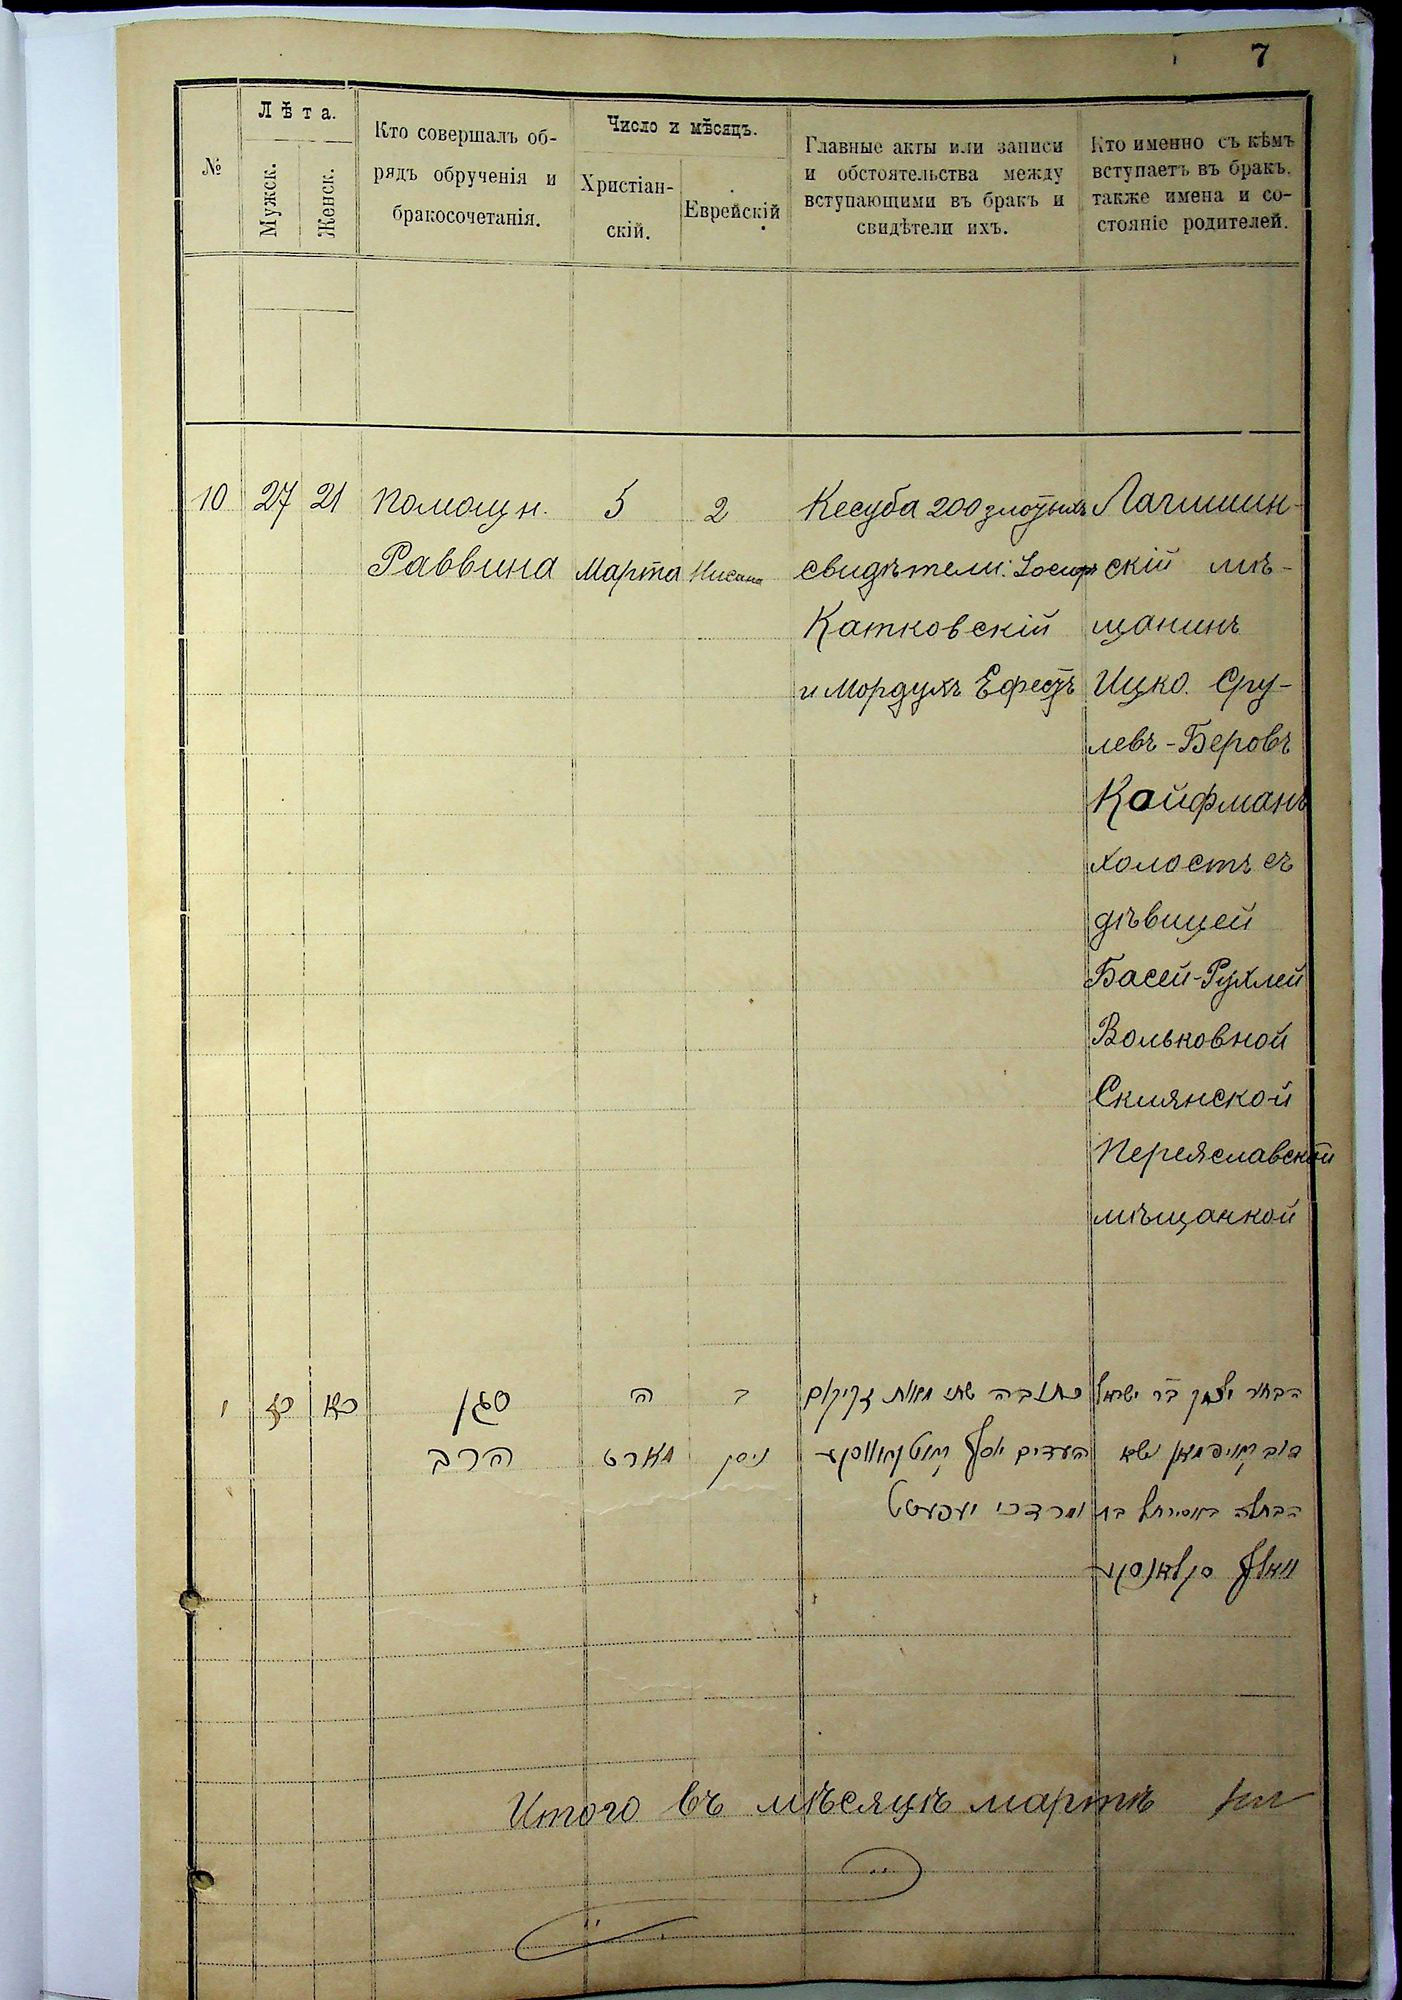 7
№
Лѣта.
Мужск.
Женск.
Кто совершалъ об-
рядъ обрученія и
бракосочетанія.
Число и мѣсяцъ.
Христіан-
скій.
Еврейскій
Главные акты или записи
и обстоятельства между
вступающими въ бракъ и
свидѣтели ихъ.
Кто именно съ кѣмъ
вступаетъ въ бракъ,
также имена и со-
стояніе родителей.
10
27
21
Помощн.
Раввина
5
Марта
2
Нисана
Кесуба 200 злотыхъ
свидѣтели: Іосифъ
Катковскій
и Мордухъ Ефестъ
Лагишин-
скій мѣ-
щанинъ
Ицко Сру-
левъ-Беровъ
Койфманъ
холостъ съ
дѣвицей
Басей-Рухлей
Вольковной
Склянской
Переяславской
мѣщанкой
י
כז
כא
סגן
הרב
ה
מארט
ב
ניסן
כתובה שתי מאות זקוקים
העדים יוסף קוטקאווסקע
ומרדכי יעפעסט
הבחור יצחק בר ישראל
דוב קויפמאן נשא
הבתולה באסירחל בת
וואלף סקליאנסקע
Итого въ мѣсяцѣ мартѣ